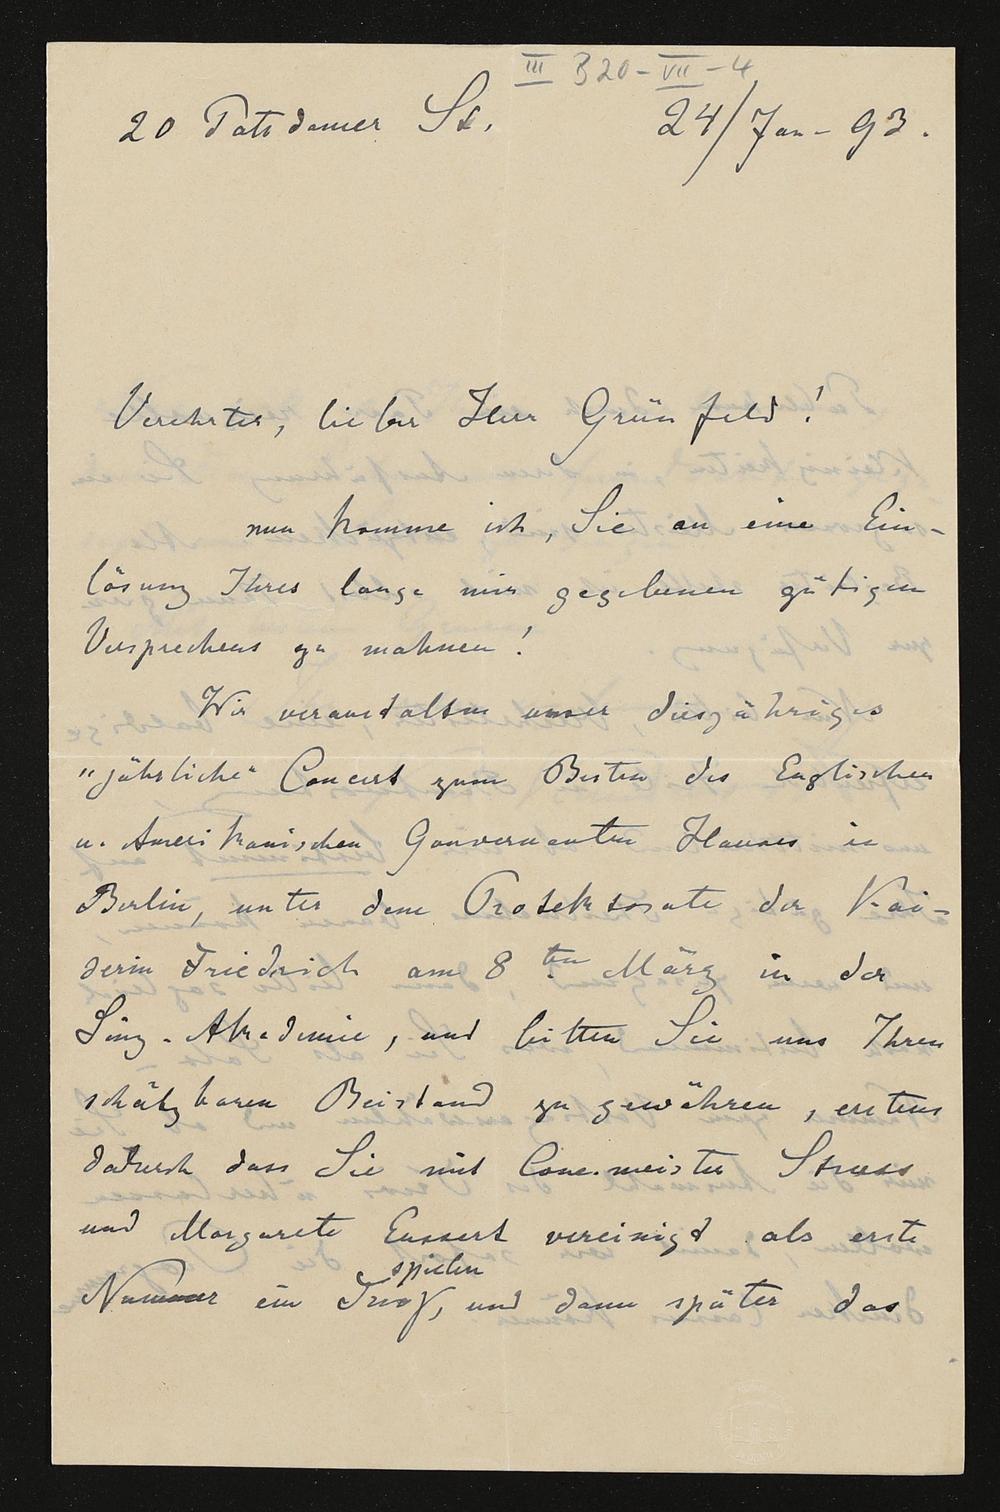 III B20-VII-4
20 Potsdamer St.
24/Jan- 93.
Verehrter, lieber Herr Grünfeld!
nun komme ich, Sie an eine Ein-
lösung Ihres lange mir gegebenen gütigen
Versprechens zu mahnen!
Wir veranstalten unser diesjähriges
"jährliche" Concert zum Besten des Englischen
u. Amerikanischen Gouvernanten Hauses in
Berlin, unter dem Protektorate der Kai-
serin Friedrich am 8ten März in der
Sing-Akademie, und bitten Sie uns Ihren
schätzbaren Beistand zu gewähren, erstens
dadurch dass Sie mit Conc.meister Struss
und Margarete Eussert vereinigt als erste
spielen
Nummer ein Trio, und dann später das